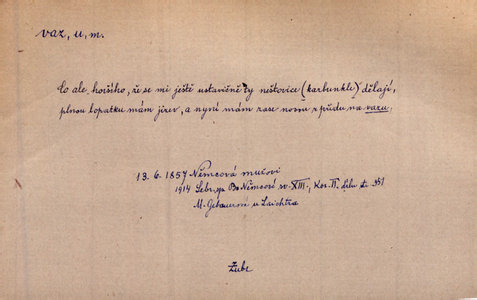 vaz, u, m.
Co ale horšího, že se mi ještě ustavičně ty neštovice (karbunkle) dělají,
plnou lopatku mám jizev, a nyní mám zase novou zpředu na vazu.
13. 6. 1857 Němcová mužovi
1914 Sebr. sp. Bo. Němcové sv. XIII., Kor. II. Libr. str. 351
M. Gebauerová u Laichtra
Zubr